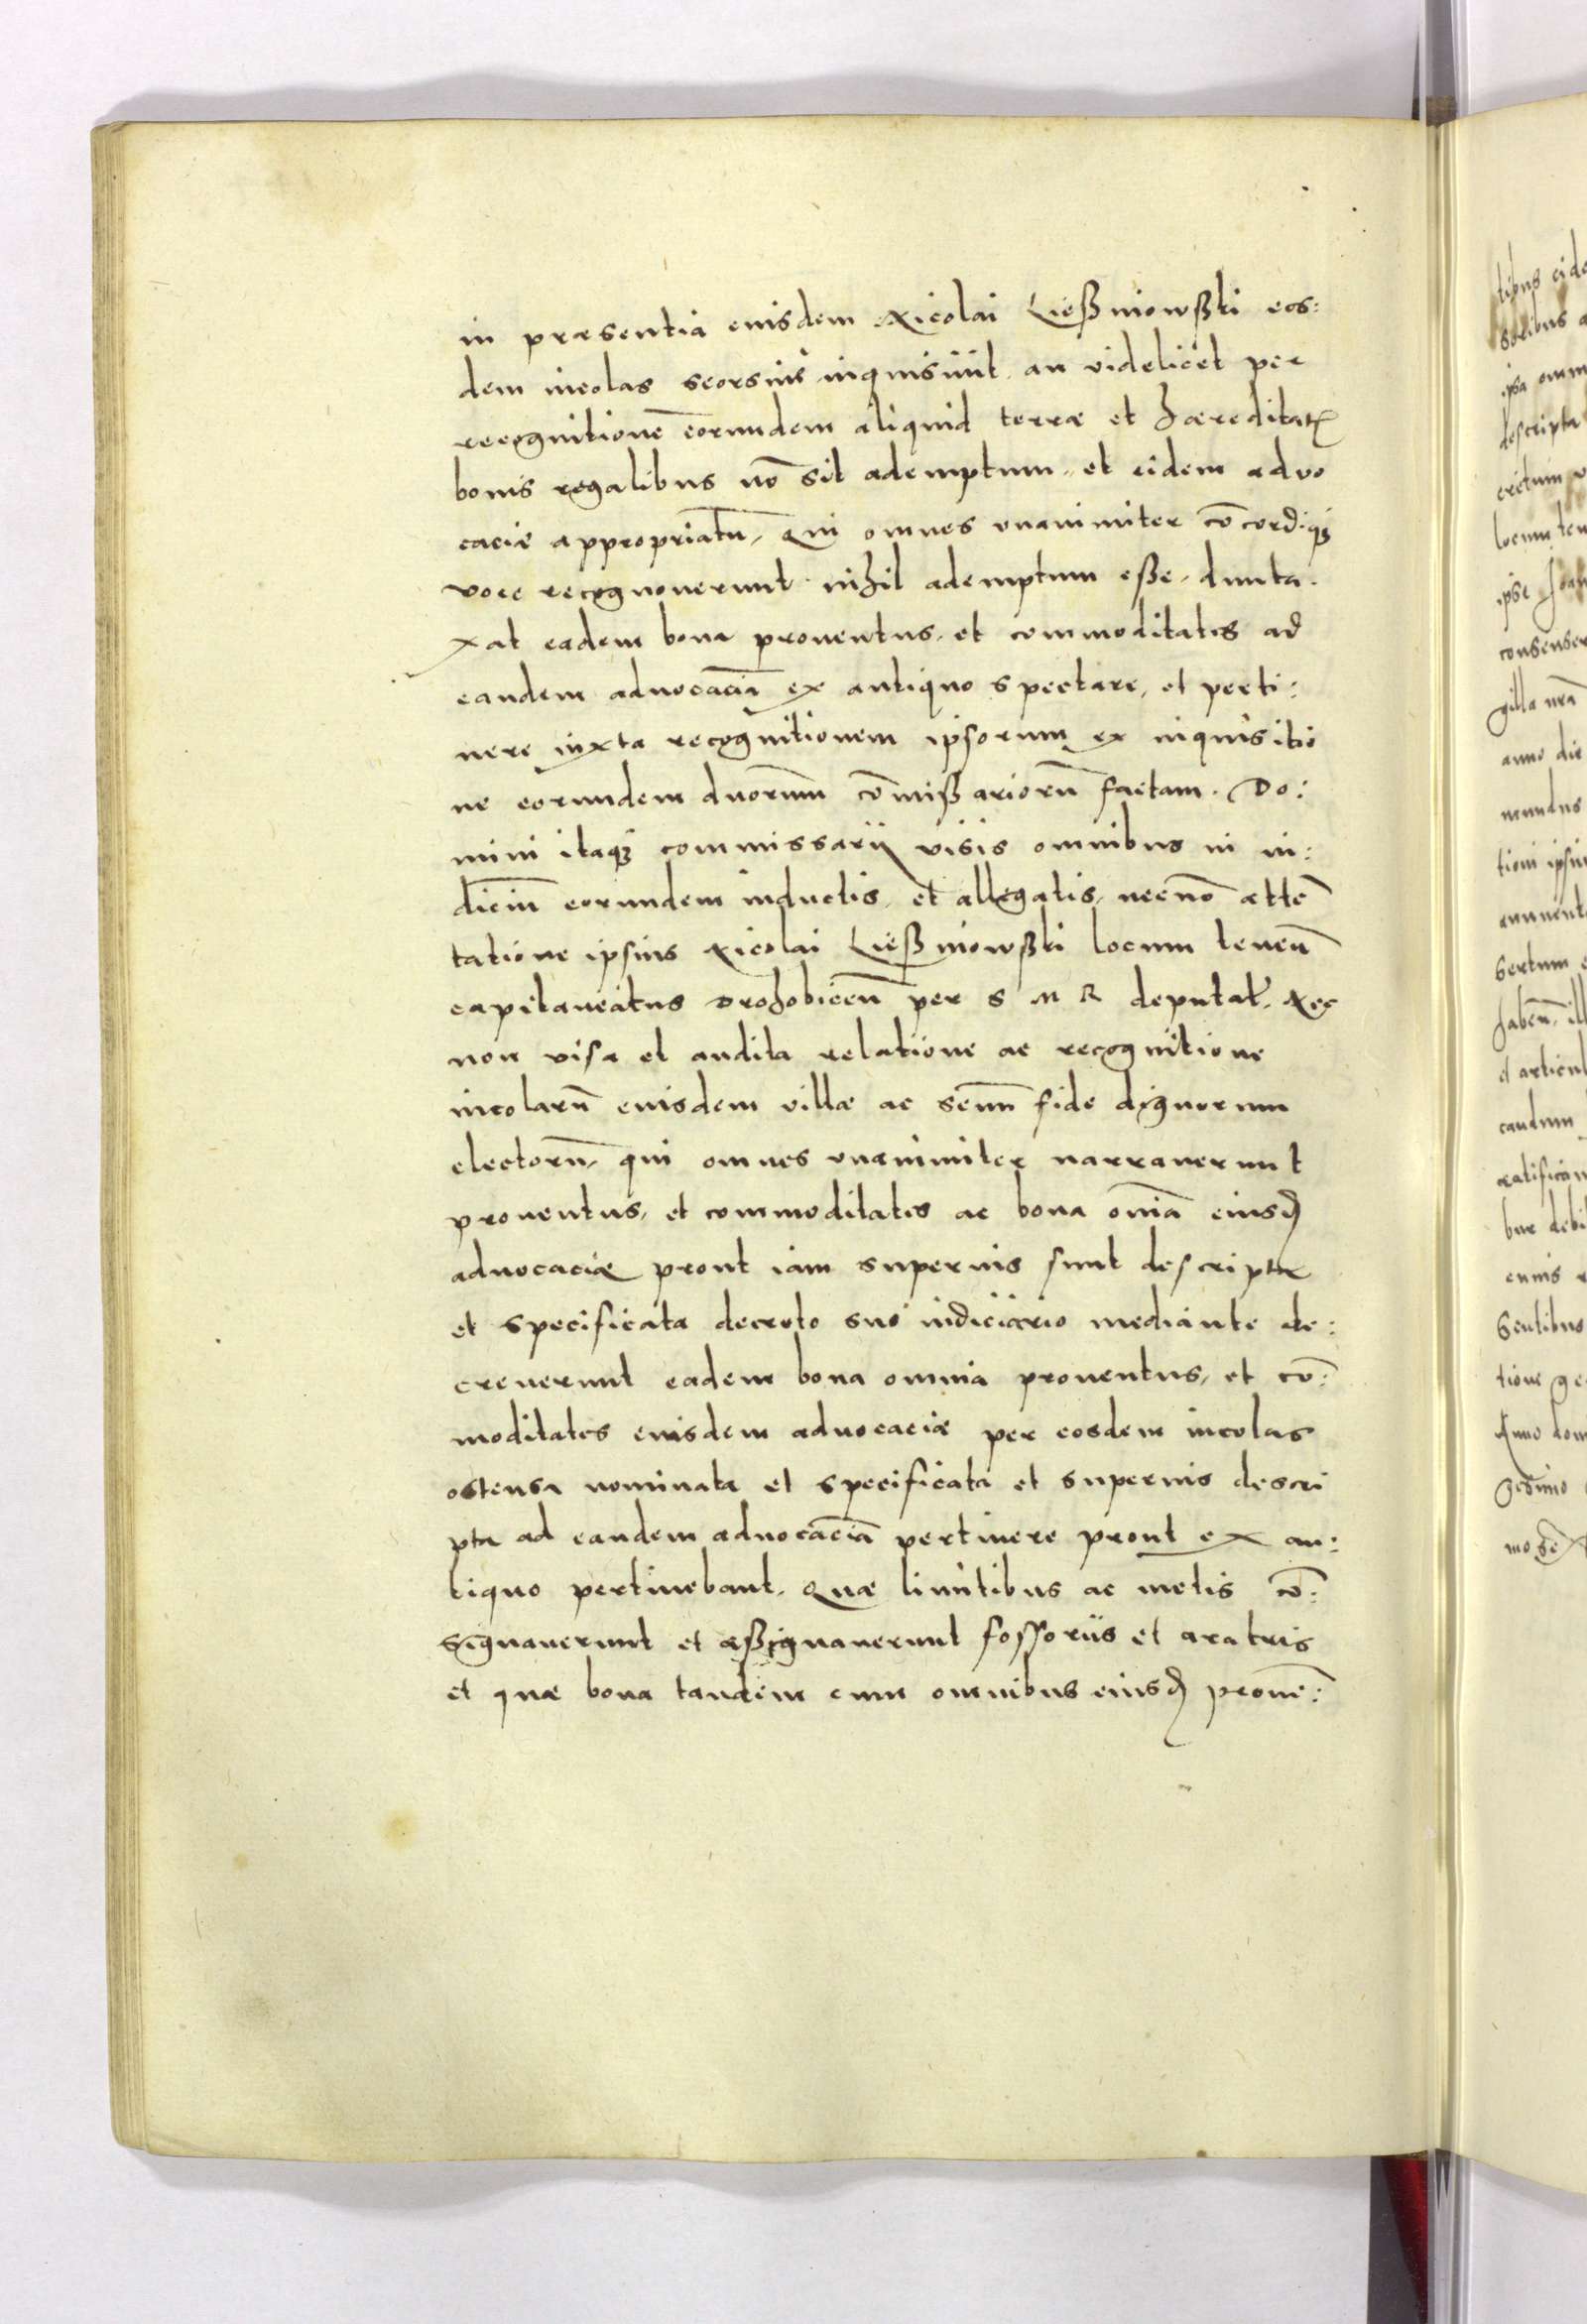 in præsentia eiusdem Nicolai Ließniowßki eos:
dem incolas seorsiuѐ inquisiuit, an videlicet per
recognitionē eorundem aliquid terræ et hæreditatꝫ
bonis regalibus nō sit ademptum, et eidem advo
caciæ appropriatū, Qui omnes vnanimiter cōcordiqꝫ
voce recognouerunt nihil ademptum eße, dunta.
xat eadem bona prouentus, et commoditates ad
eandem aduocaciā ex antiquo spectare, et perti:
nere iuxta recognitionem ipsorum ex inquisitio
ne eorundem duorum cōmißariorū factam. Do:
mini itaqꝫ commissarij visis omnibus in iu:
diciū eorundem inductis, et allegatis, necnō attē
tatione ipsius Nicolai Ließniowßki locum tenen̄
capitaneatus Drohobicen̄ per S M R deputat̄. Nec
non visa et audita relatione ac recognitione
incolarū eiusdem villæ ac senū fide dignorum
electorū, qui omnes vnanimiter narrauerunt
prouentus, et commoditates ac bona omīa eiusd
aduocaciæ prout iam superius sunt descripta
et specificata decreto suo iudiciario mediante de:
creuerunt eadem bona omnia prouentus, et cō:
moditates eiusdem aduocaciæ per eosdem incolas
ostensa nominata et specificata et superius descri
pta ad eandem aduocaciā pertinere prout ex an:
tiquo pertinebant, Quæ limitibus ac metis cō:
signauerunt et aßignauerunt fossoriis et aratris
et quæ bona tandem cum omnibus eiusd prouē: